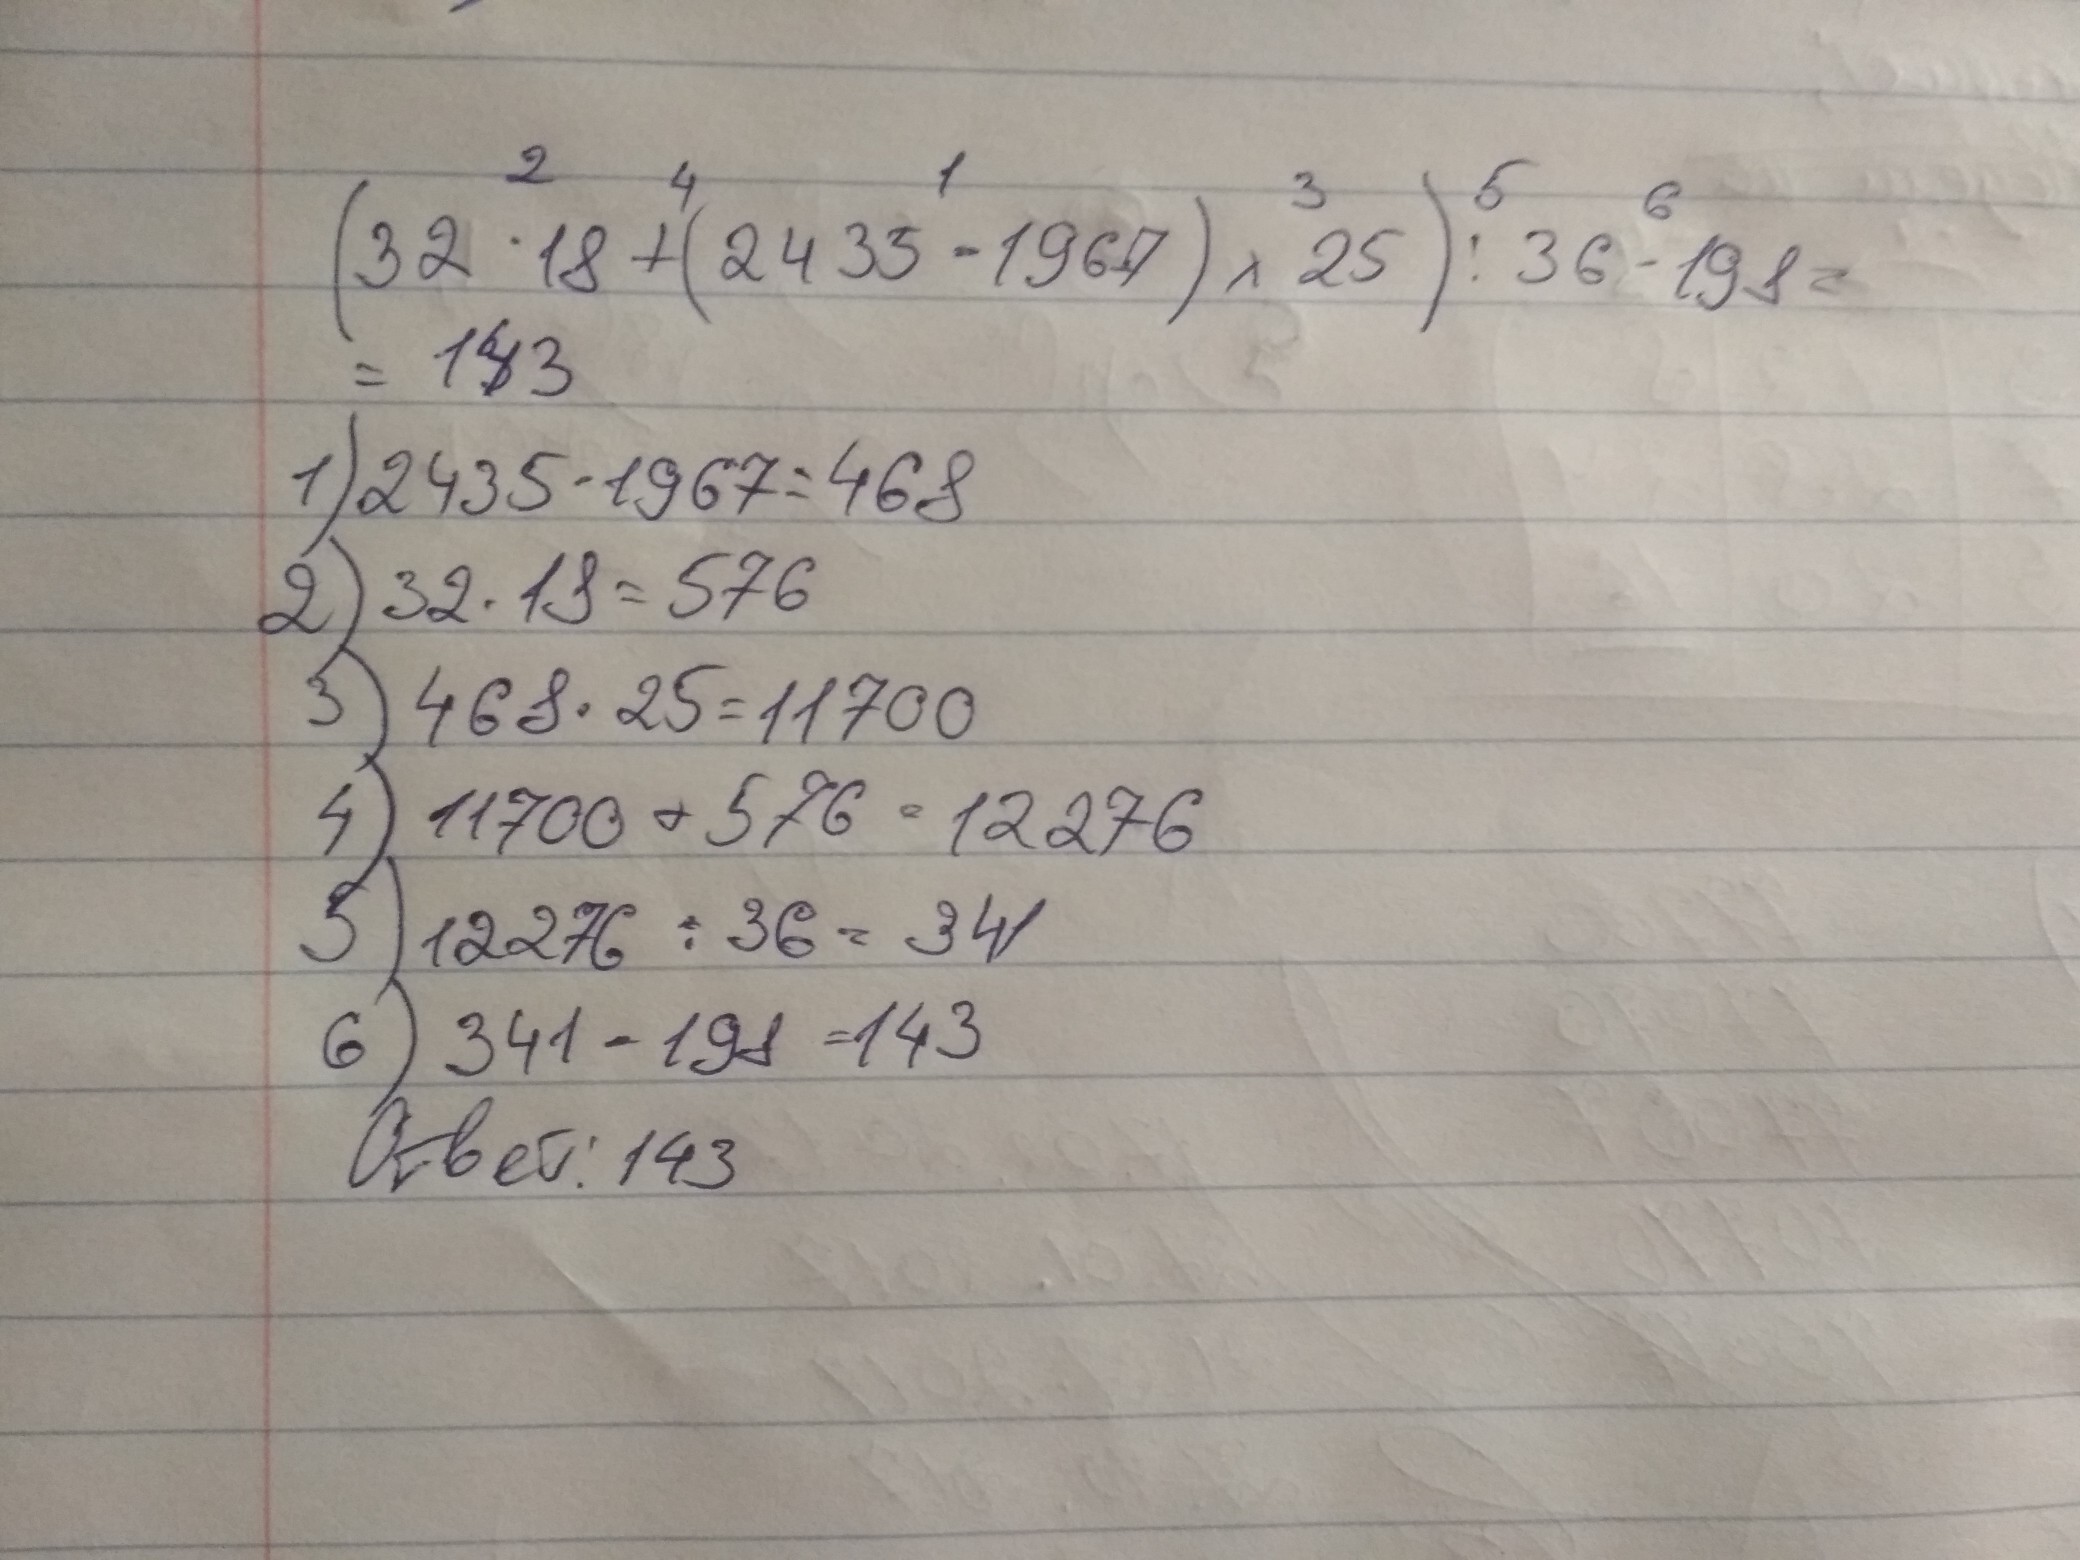 2 4 1 3 5 6
(32 · 18 + (2435 - 1967) × 25) : 36 - 198 =
= 143
1) 2435 - 1967 = 468
2) 32 · 18 = 576
3) 468 · 25 = 11700
4) 11700 + 576 = 12276
5) 12276 ÷ 36 = 341
6) 341 - 198 = 143
Ответ: 143